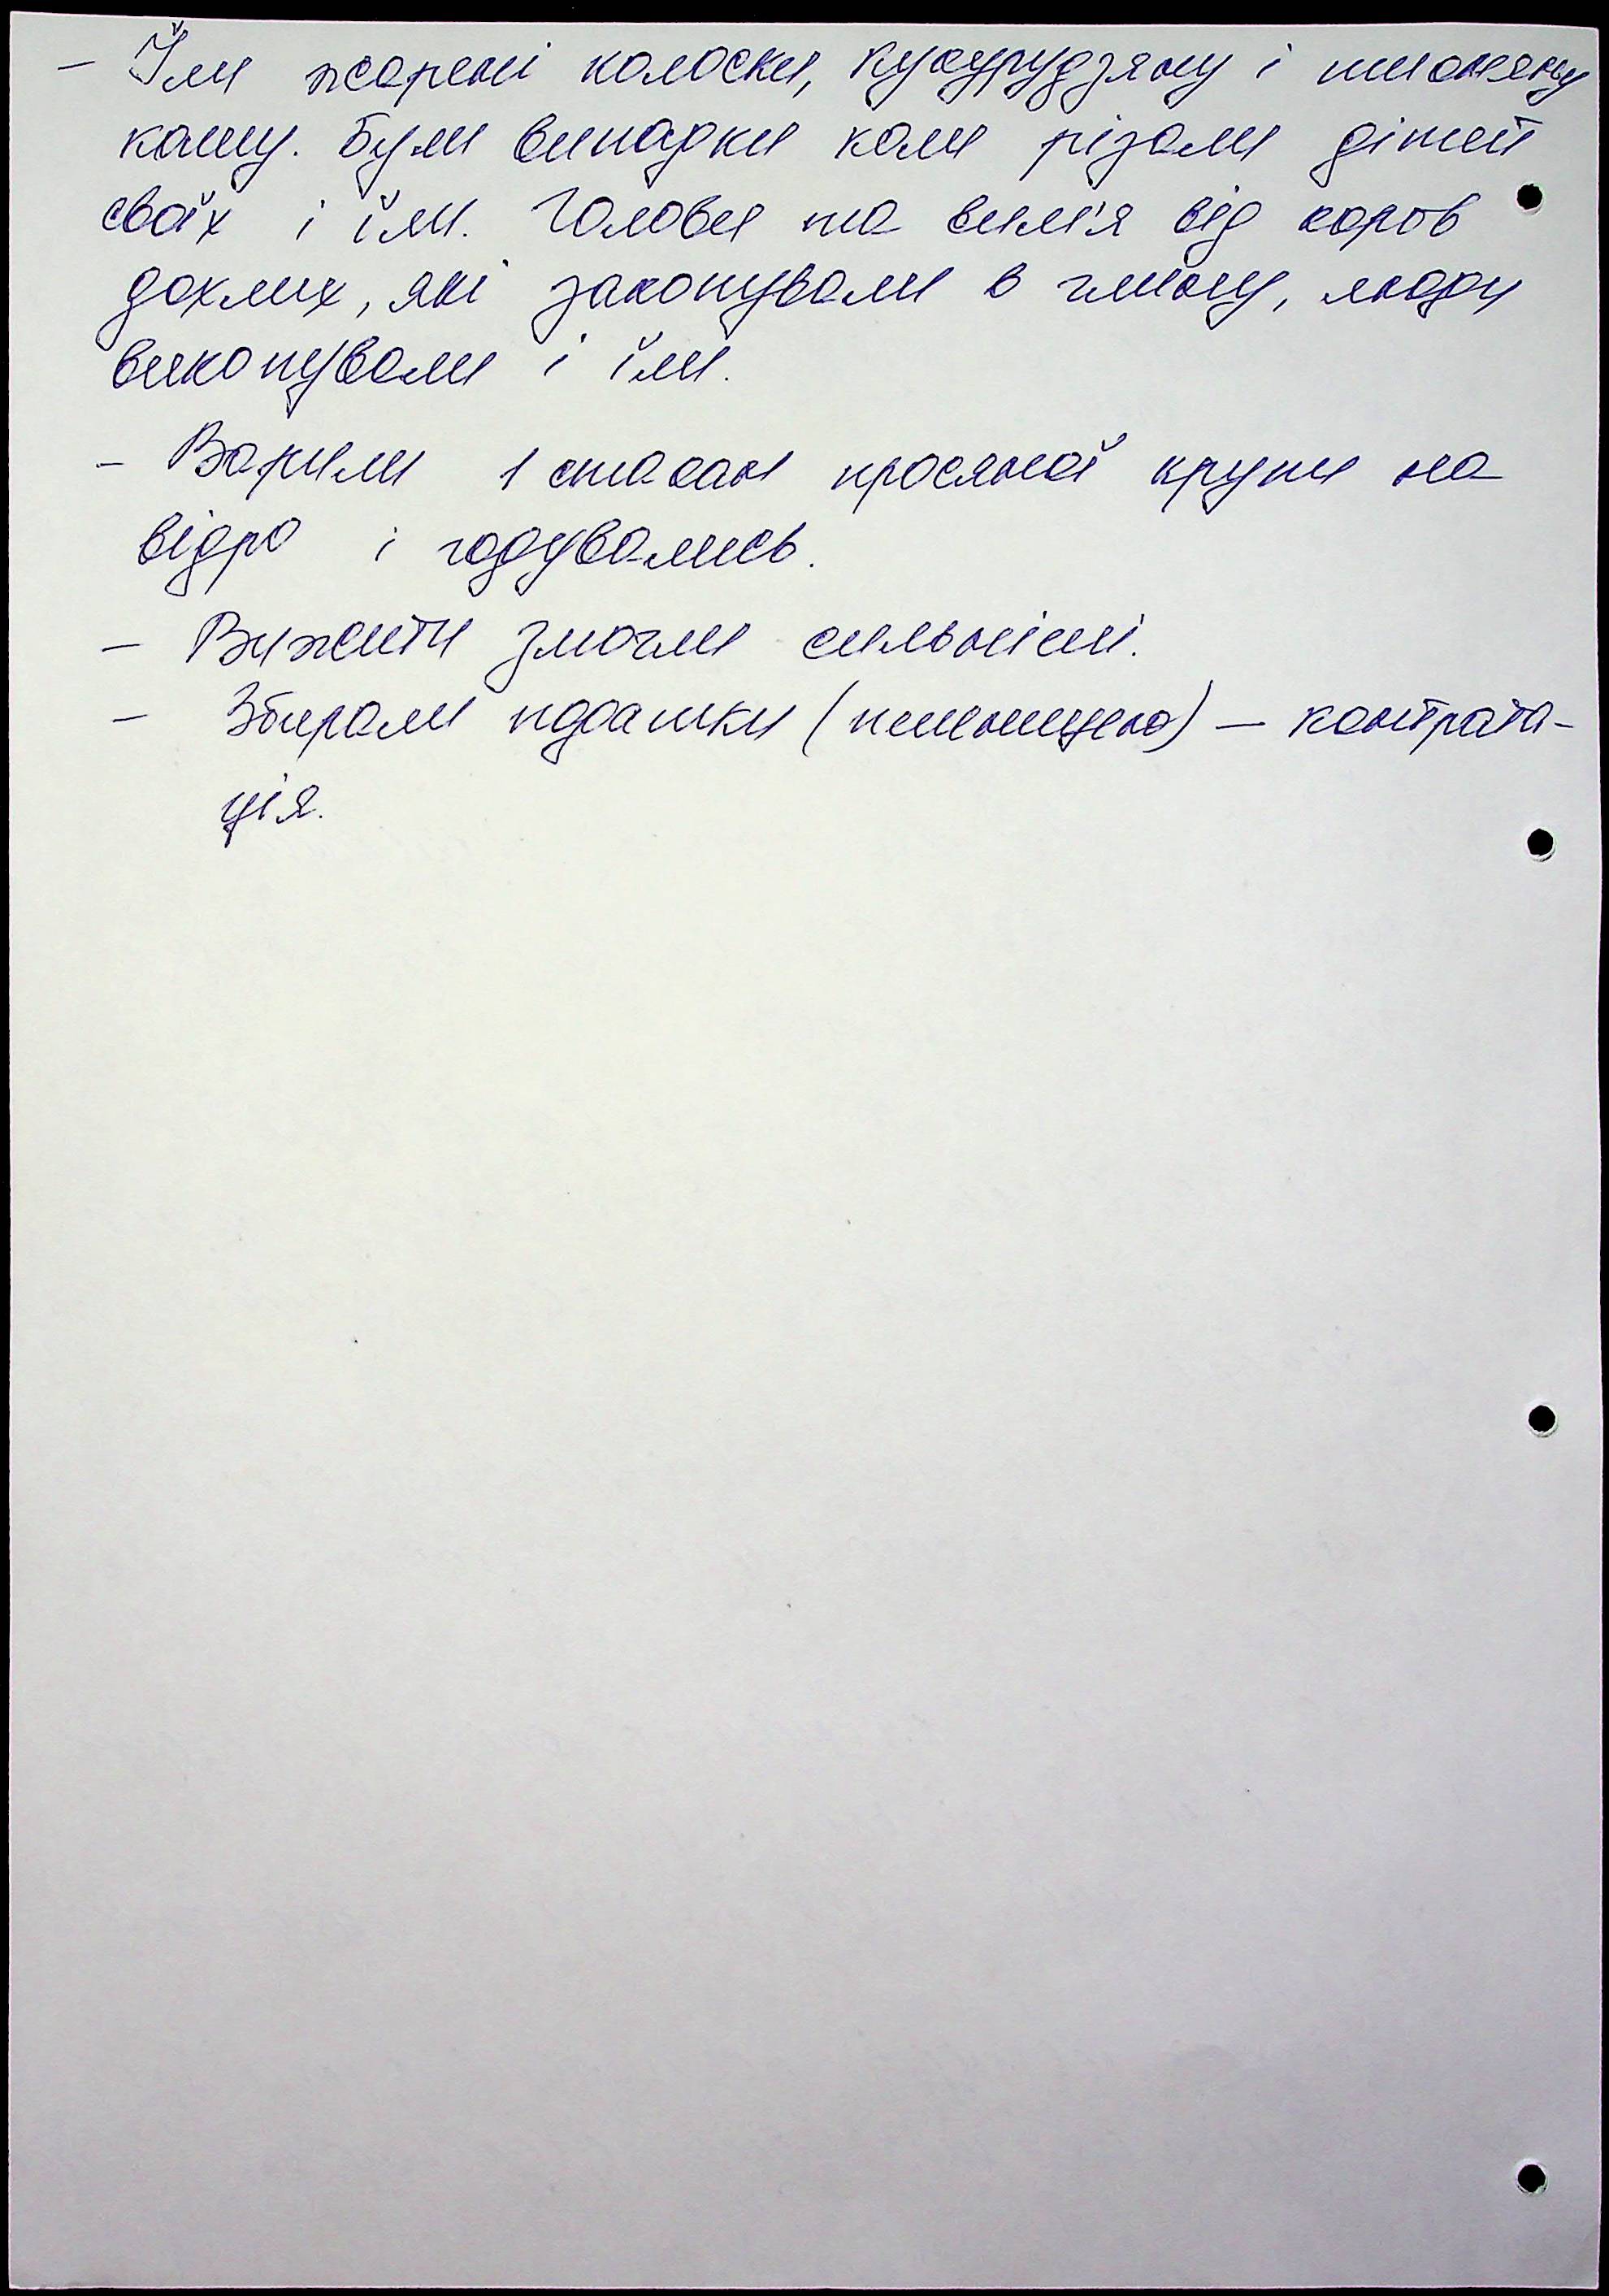 – Їли жарені колоски, кукурудзяну і пшоняну
кашу. Були випадки коли різали дітей
своїх і їли. Голови та вим'я від коров
дохлих, які закопували в глину, люди
викопували і їли.
– Варили 1 стакан просяної крупи на
відро і годувались.
– Вижити змогли сильніші.
– Збирали подашки (пшеницею) – контрата-
ція.